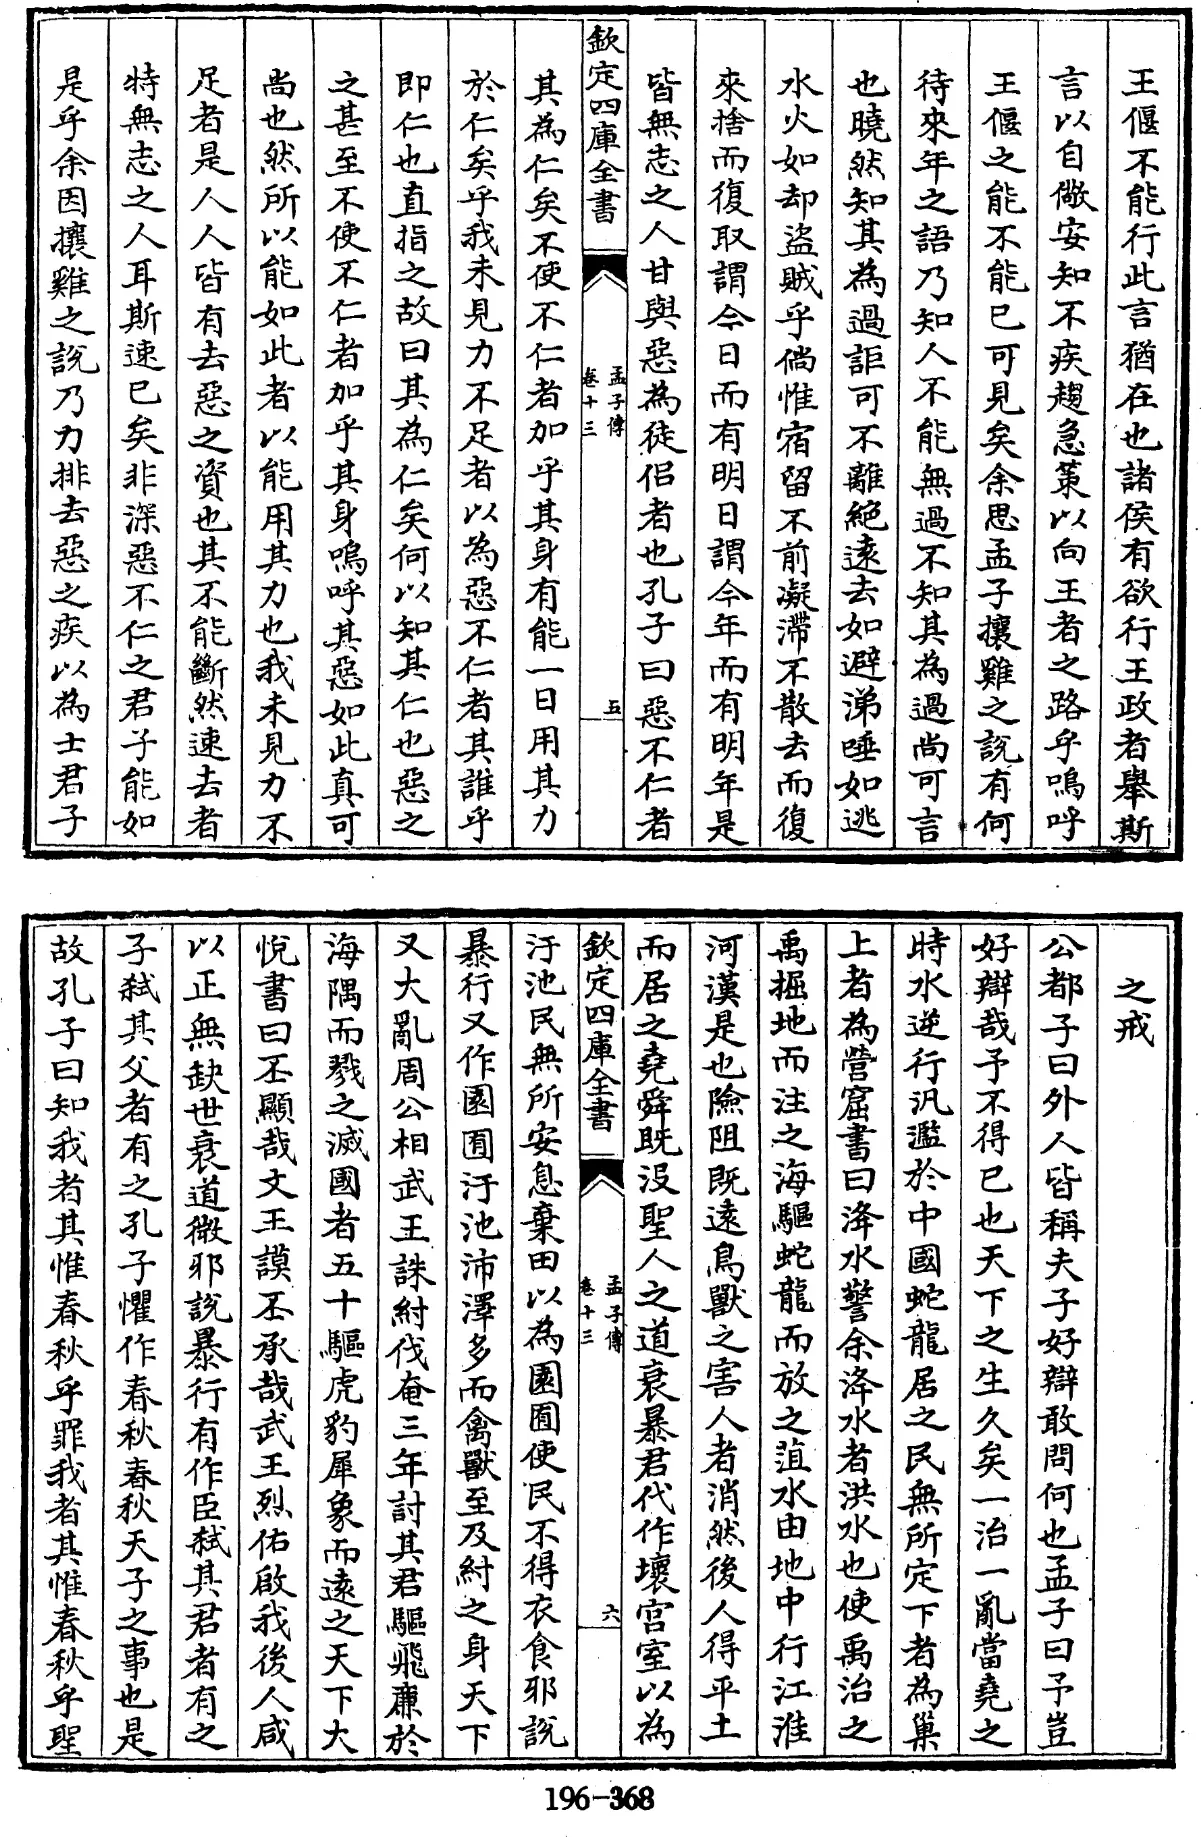 王偃不能行此言猶在也諸侯有欲行王政者舉斯
言以自儆安知不疾趨急策以向王者之路乎嗚呼
王偃之能不能已可見矣余思孟子攘雞之説有何
待來年之語乃知人不能無過不知其為過尚可言
也曉然知其為過詎可不離絶逺去如避涕唾如逃
水火如却盜賊乎倘惟宿留不前凝滯不散去而復
來捨而復取謂今日而有明日謂今年而有明年是
皆無志之人甘與惡為徒侶者也孔子曰惡不仁者
欽定四庫全書
孟子傳
卷十三
五
其為仁矣不使不仁者加乎其身有能一日用其力
於仁矣乎我未見力不足者以為惡不仁者其誰乎
即仁也直指之故曰其為仁矣何以知其仁也惡之
之甚至不使不仁者加乎其身嗚呼其惡如此真可
尚也然所以能如此者以能用其力也我未見力不
足者是人人皆有去惡之資也其不能斷然速去者
特無志之人耳斯速已矣非深惡不仁之君子能如
是乎余因攘雞之説乃力排去惡之疾以為士君子
之戒
公都子曰外人皆稱夫子好辯敢問何也孟子曰予豈
好辯哉予不得已也天下之生久矣一治一亂當堯之
時水逆行汎濫於中國蛇龍居之民無所定下者為巢
上者為營窟書曰洚水警余洚水者洪水也使禹治之
禹掘地而注之海驅蛇龍而放之菹水由地中行江淮
河漢是也險阻既逺鳥獸之害人者消然後人得平土
而居之堯舜既没聖人之道衰暴君代作壞宫室以為
欽定四庫全書
孟子傳
卷十三
六
汙池民無所安息棄田以為園囿使民不得衣食邪説
暴行又作園囿汙池沛澤多而禽獸至及紂之身天下
又大亂周公相武王誅紂伐奄三年討其君驅飛廉於
海隅而戮之滅國者五十驅虎豹犀象而逺之天下大
悅書曰丕顯哉文王謨丕承哉武王烈佑啟我後人咸
以正無缺世衰道微邪説暴行有作臣弑其君者有之
子弑其父者有之孔子懼作春秋春秋天子之事也是
故孔子曰知我者其惟春秋乎罪我者其惟春秋乎聖
196-368